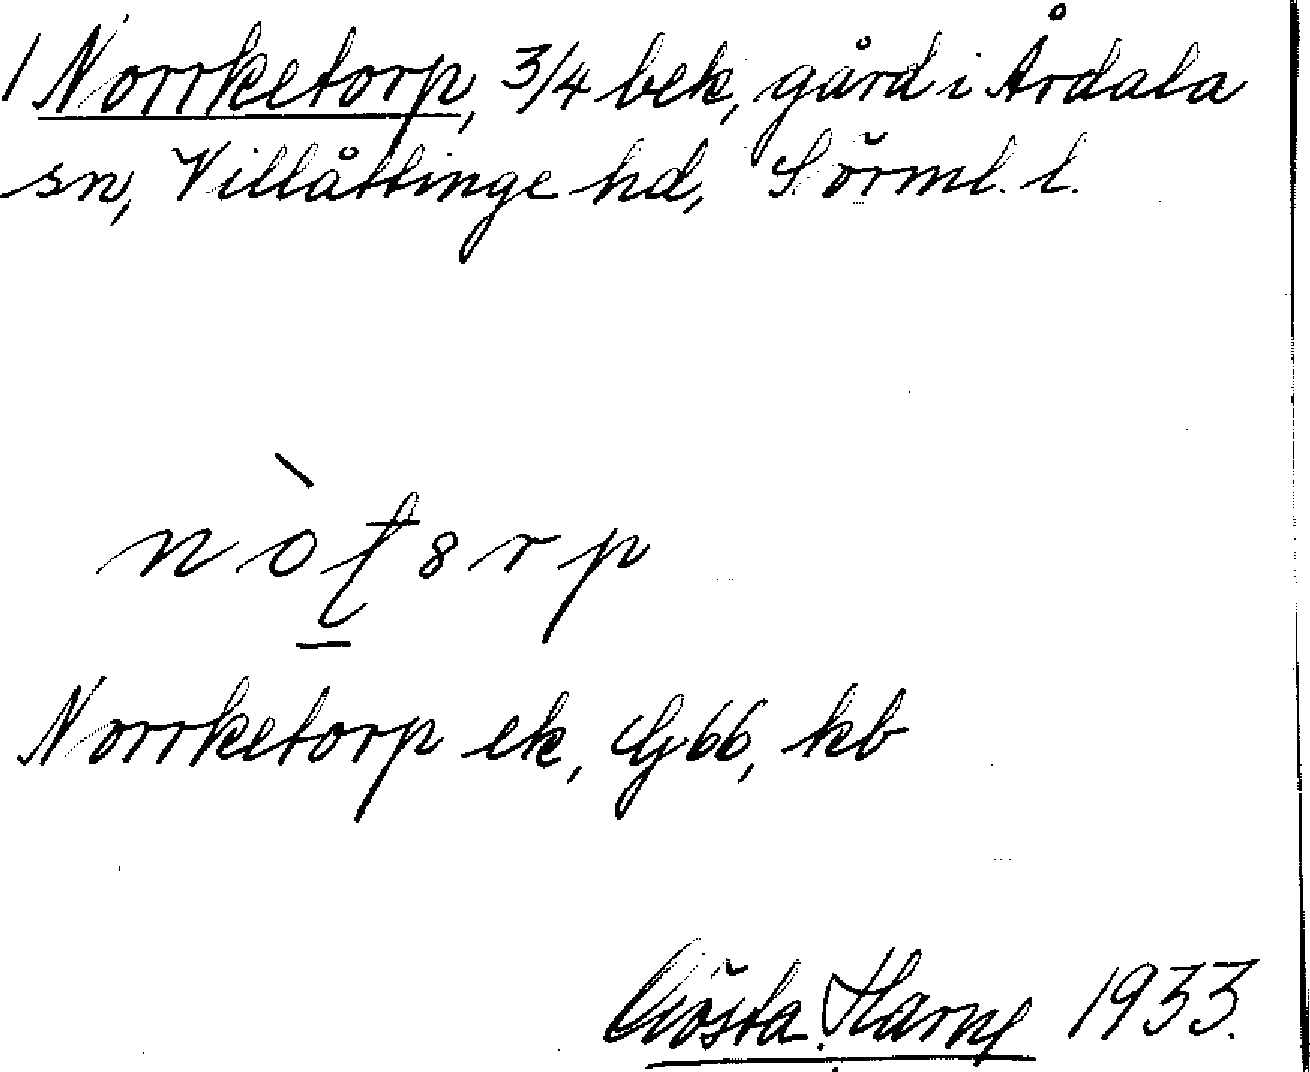 1 Norrketorp, 3/4 bek, gård i Årdala
sn, Villåttinge hd, Sörml. l.
nòʈ8rp
Norrketorp ek, G66, kb
Gösta Harny 1933.